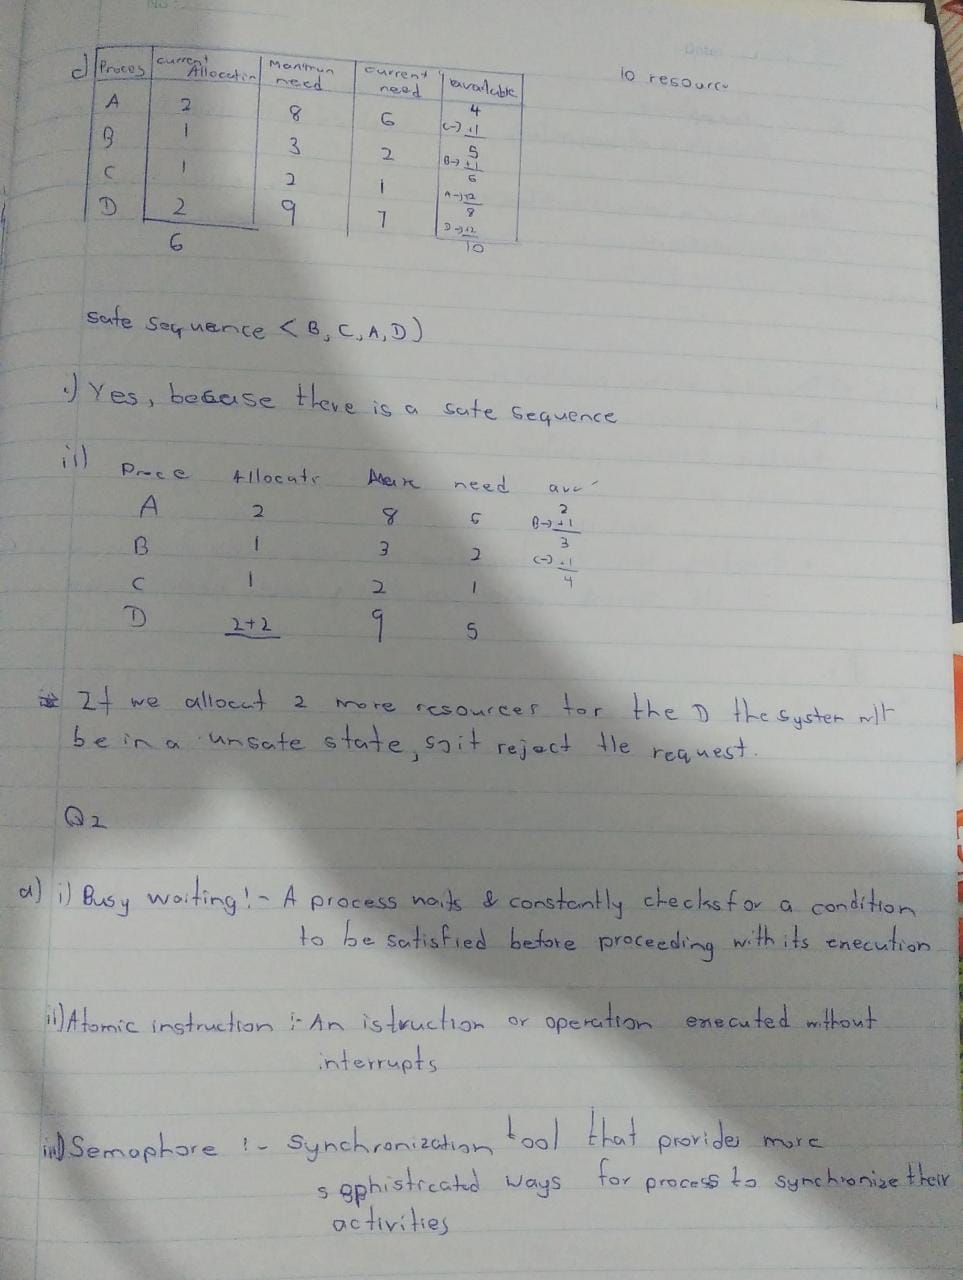 c) Proces current Allocatin Maximun need current need available 10 resource
A 2 8 6 4
C→ +1
B 1 3 2 5
B→ +1
C 1 2 1 6
A→ +2
8
D 2 9 7 D→ +2
6 10
safe sequence < B, C, A, D)
i) Yes, because there is a safe sequence
ii) Proce Allocatr Max need ava
A 2 8 6 2
B→ +1
B 1 3 2 3
C→ +1
C 1 2 1 4
D 2+2 9 5
If we allocat 2 more resources for the D the system will
be in a unsafe state, so it reject the request.
Q2
a) i) Busy waiting :- A process waits & constantly checks for a condition
to be satisfied before proceeding with its execution
ii) Atomic instruction :- An istruction or operation executed without
interrupts
iii) Semophore :- Synchronization tool that provides more
sophisticated ways for process to synchronize their
activities